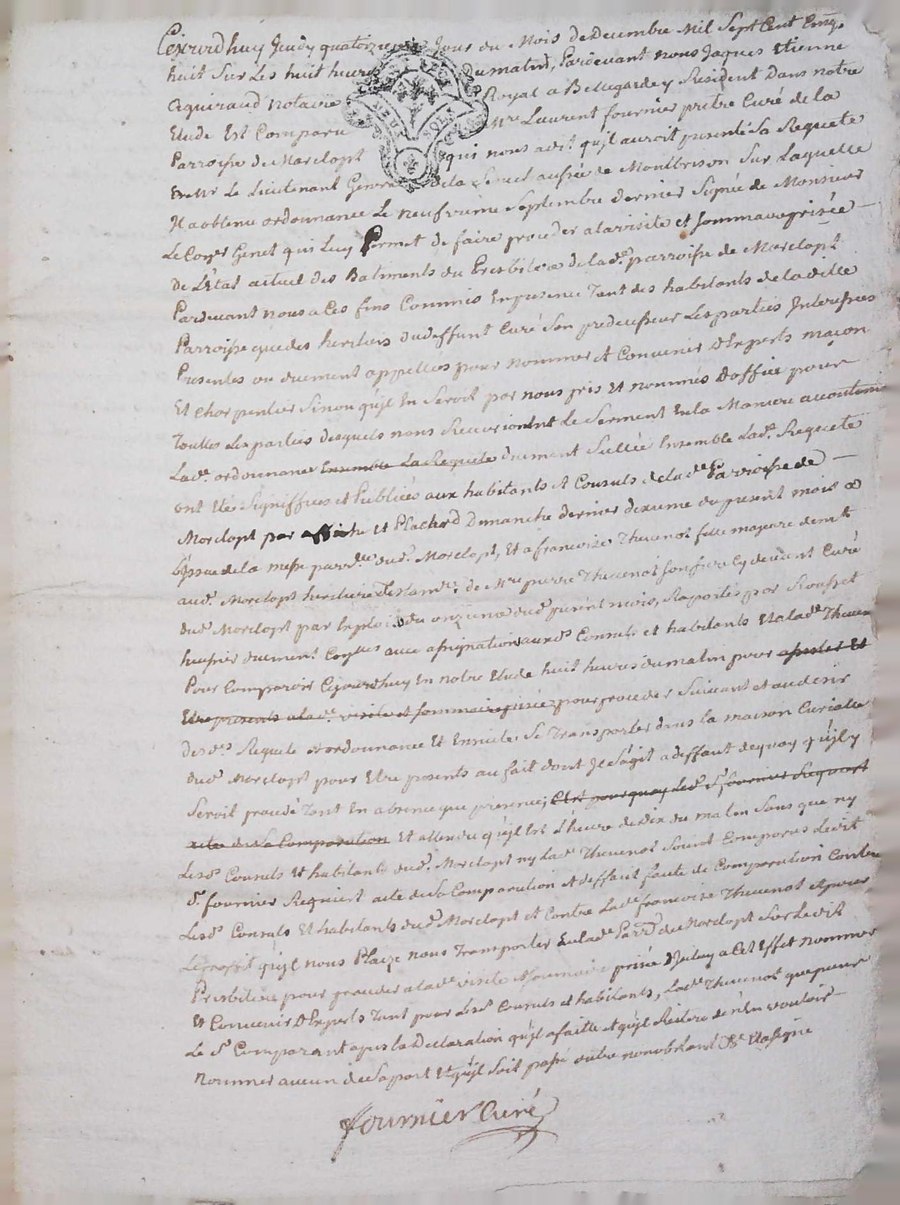 Cejourdhuy Jeudy quatorzieme Jour du Mois de Decembre Mil Sept Cent Cinq.
huit Sur Les huit heures du matin, Pardevant nous Jaques Etienne
Aguiraud notaire Royal a Bellegarde y Residant Dans notre
Etude Est Comparu Mre Laurent fournier pretre Curé de la
Parroisse de Marclopt qui nous a dit quil auroit presenté Sa Requete
a Mr Le Lieutenant General de la Senech aussée de Montbrison Sur Laquelle
Il a obtenu ordonnance Le neufvieme Septembre dernier Signée de Monsieur
Le Coner Genet qui Luy Permet de faire proceder a la visite et Sommaire prisée
de L'Etat actuel des Batiments du Presbitere de lade parroisse de Marclopt
Pardevant nous a Ces fins Commis En presence Tant des habitants de ladite
Parroisse que des heritiers du deffunt Curé Son predecesseur Les parties Interessées
Presentes ou duement appellées pour nommer et Convenir D'Experts maçon
Et Charpentier Sinon quil En Seroit par nous pris Et nommés D'office pour
Touttes Les parties desquels nous Recevrions Le Serment En la Maniere accoutumée
Lade ordonnance Ensemble La Requete duement Scellée Ensemble Lade Requete
ont Eté Signiffiées et Publiées aux habitants et Consuls de lade Parroisse de
Marclopt par affiche et Placard Dimanche dernier dixieme du present mois a
L'issue de la messe parrle dud. Marclopt, Et a francoise Thevenot fille majeure demt
aud. Marclopt heritiere Testamre de Mre pierre Thevenot Son frere Cy devant Curé
dud. Marclopt par Exploit du onzieme dud. present mois, Raportés par Rousset
huissier duement avec assignation auxds Consuls et habitants Et a lade Thevenot
Pour Comparoir Cejourdhuy En notre Etude huit heures du matin pour assister Et
Etre presents a lade visite et Sommaire prisée pour proceder Suivant et au desir
desds Requete et ordonnance Et Ensuite Se Transporter dans la maison Curialle
dud. Marclopt pour Etre presents au fait dont Il S'agit a deffaut de quoy quil y
Seroit procedé Tant En absence que presence; C'est pourquoy Led. Sr fournier Requiert
acte de Sa Comparution Et attendu quil Est L'heure de Dix du matin Sans que ny
Lesds Consuls Et habitants dud. Marclopt ny Lade Thevenot Soient Comparus Ledit
Sr fournier Requiert acte de Sa Comparution et deffaut faute de Comparution Contre
Lesds Consuls Et habitants dud. Marclopt et Contre Lade francoise Thevenot et pour
Le proffit quil nous Plaize nous Transporter En lade Parrse de Marclopt Sur Ledit
Presbitere pour proceder a lade visite Sommaire prisée D'iceluy a Cet Effet nommer
Et Convenir D'Experts Tant pour Lesds Consuls et habitants, Lade Thevenot que pour
Le Sr Comparant apres la Declaration quil a faitte et quil Reitere de n'En vouloir
nommer aucun de Sa part Et quil Soit passé outre nonobstant Et a Signé
fournier Curé